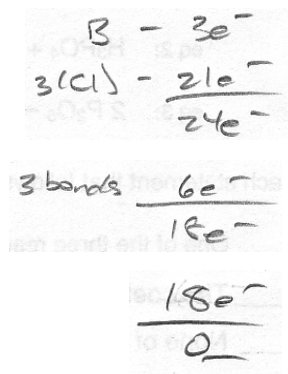 B - 3e⁻
3(Cl) - 21e⁻
24e⁻
3 bonds 6e⁻
18e⁻
18e⁻
0